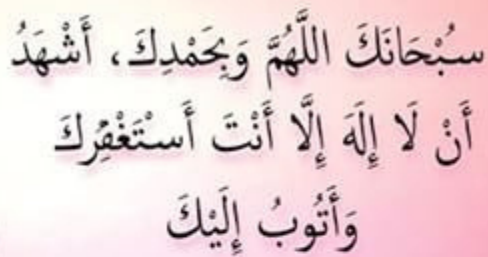 سُبْحَانَكَ اللَّهُمَّ وَبِحَمْدِكَ، أَشْهَدُ
أَنْ لَا إِلَهَ إِلَّا أَنْتَ أَسْتَغْفِرُكَ
وَأَتُوبُ إِلَيْكَ